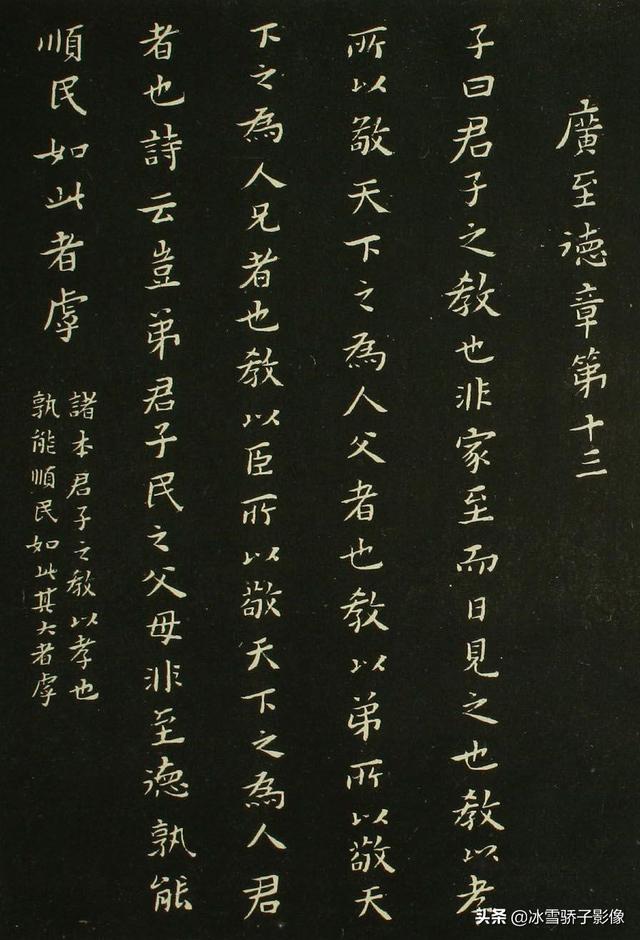 廣至德章第十三
子曰君子之教也非家至而日見之也教以孝
所以敬天下之為人父者也教以弟所以敬天
下之為人兄者也教以臣所以敬天下之為人君
者也詩云豈弟君子民之父母非至德孰能
順民如此者虖
諸本君子之教以孝也
孰能順民如此其大者虖
头条 @冰雪骄子影像